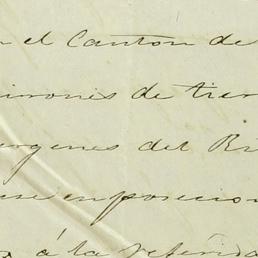 n el Canton de
irones de tier
rgenes del Ri
se en posecion
á la referida